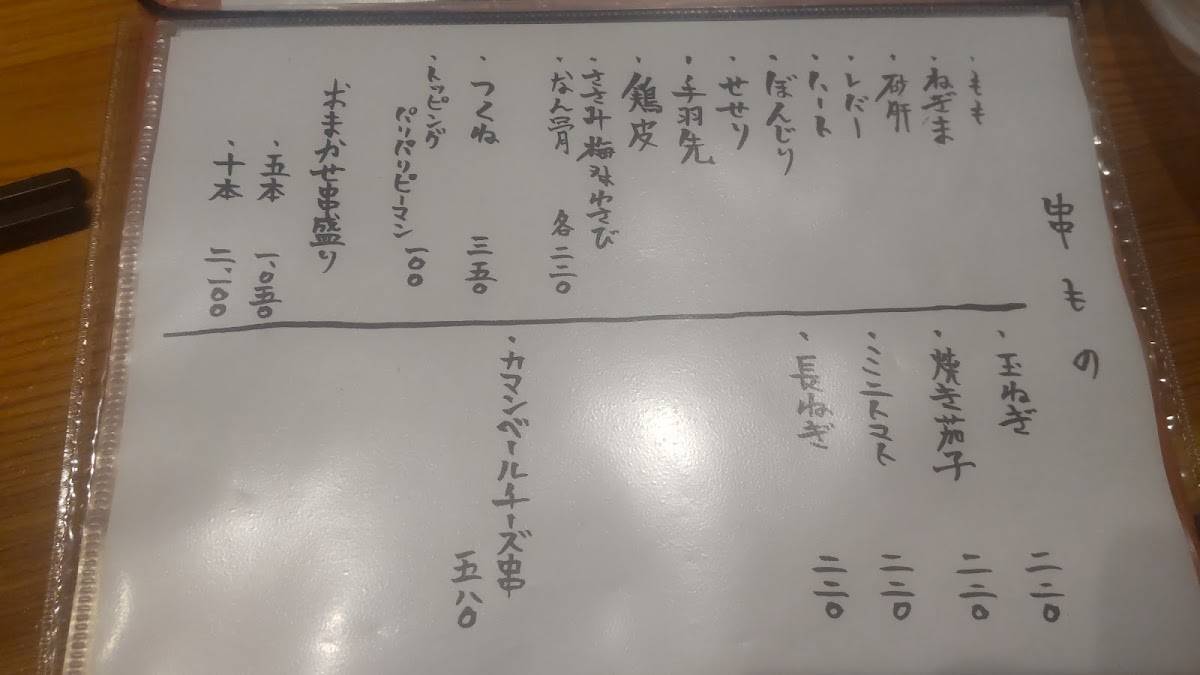 串もの
・もも
・ねぎま
・砂肝
・レバー
・ハート
・ぼんじり
・せせり
・手羽先
・鶏皮
・ささみ梅 or わさび
・なん骨 各二二〇
・つくね 三五〇
・トッピング
パリパリピーマン 一〇〇
おまかせ串盛り
・五本 一、〇五〇
・十本 二、一〇〇
・玉ねぎ 二二〇
・焼き茄子 二二〇
・ミニトマト 二二〇
・長ねぎ 二二〇
・カマンベールチーズ串 五八〇